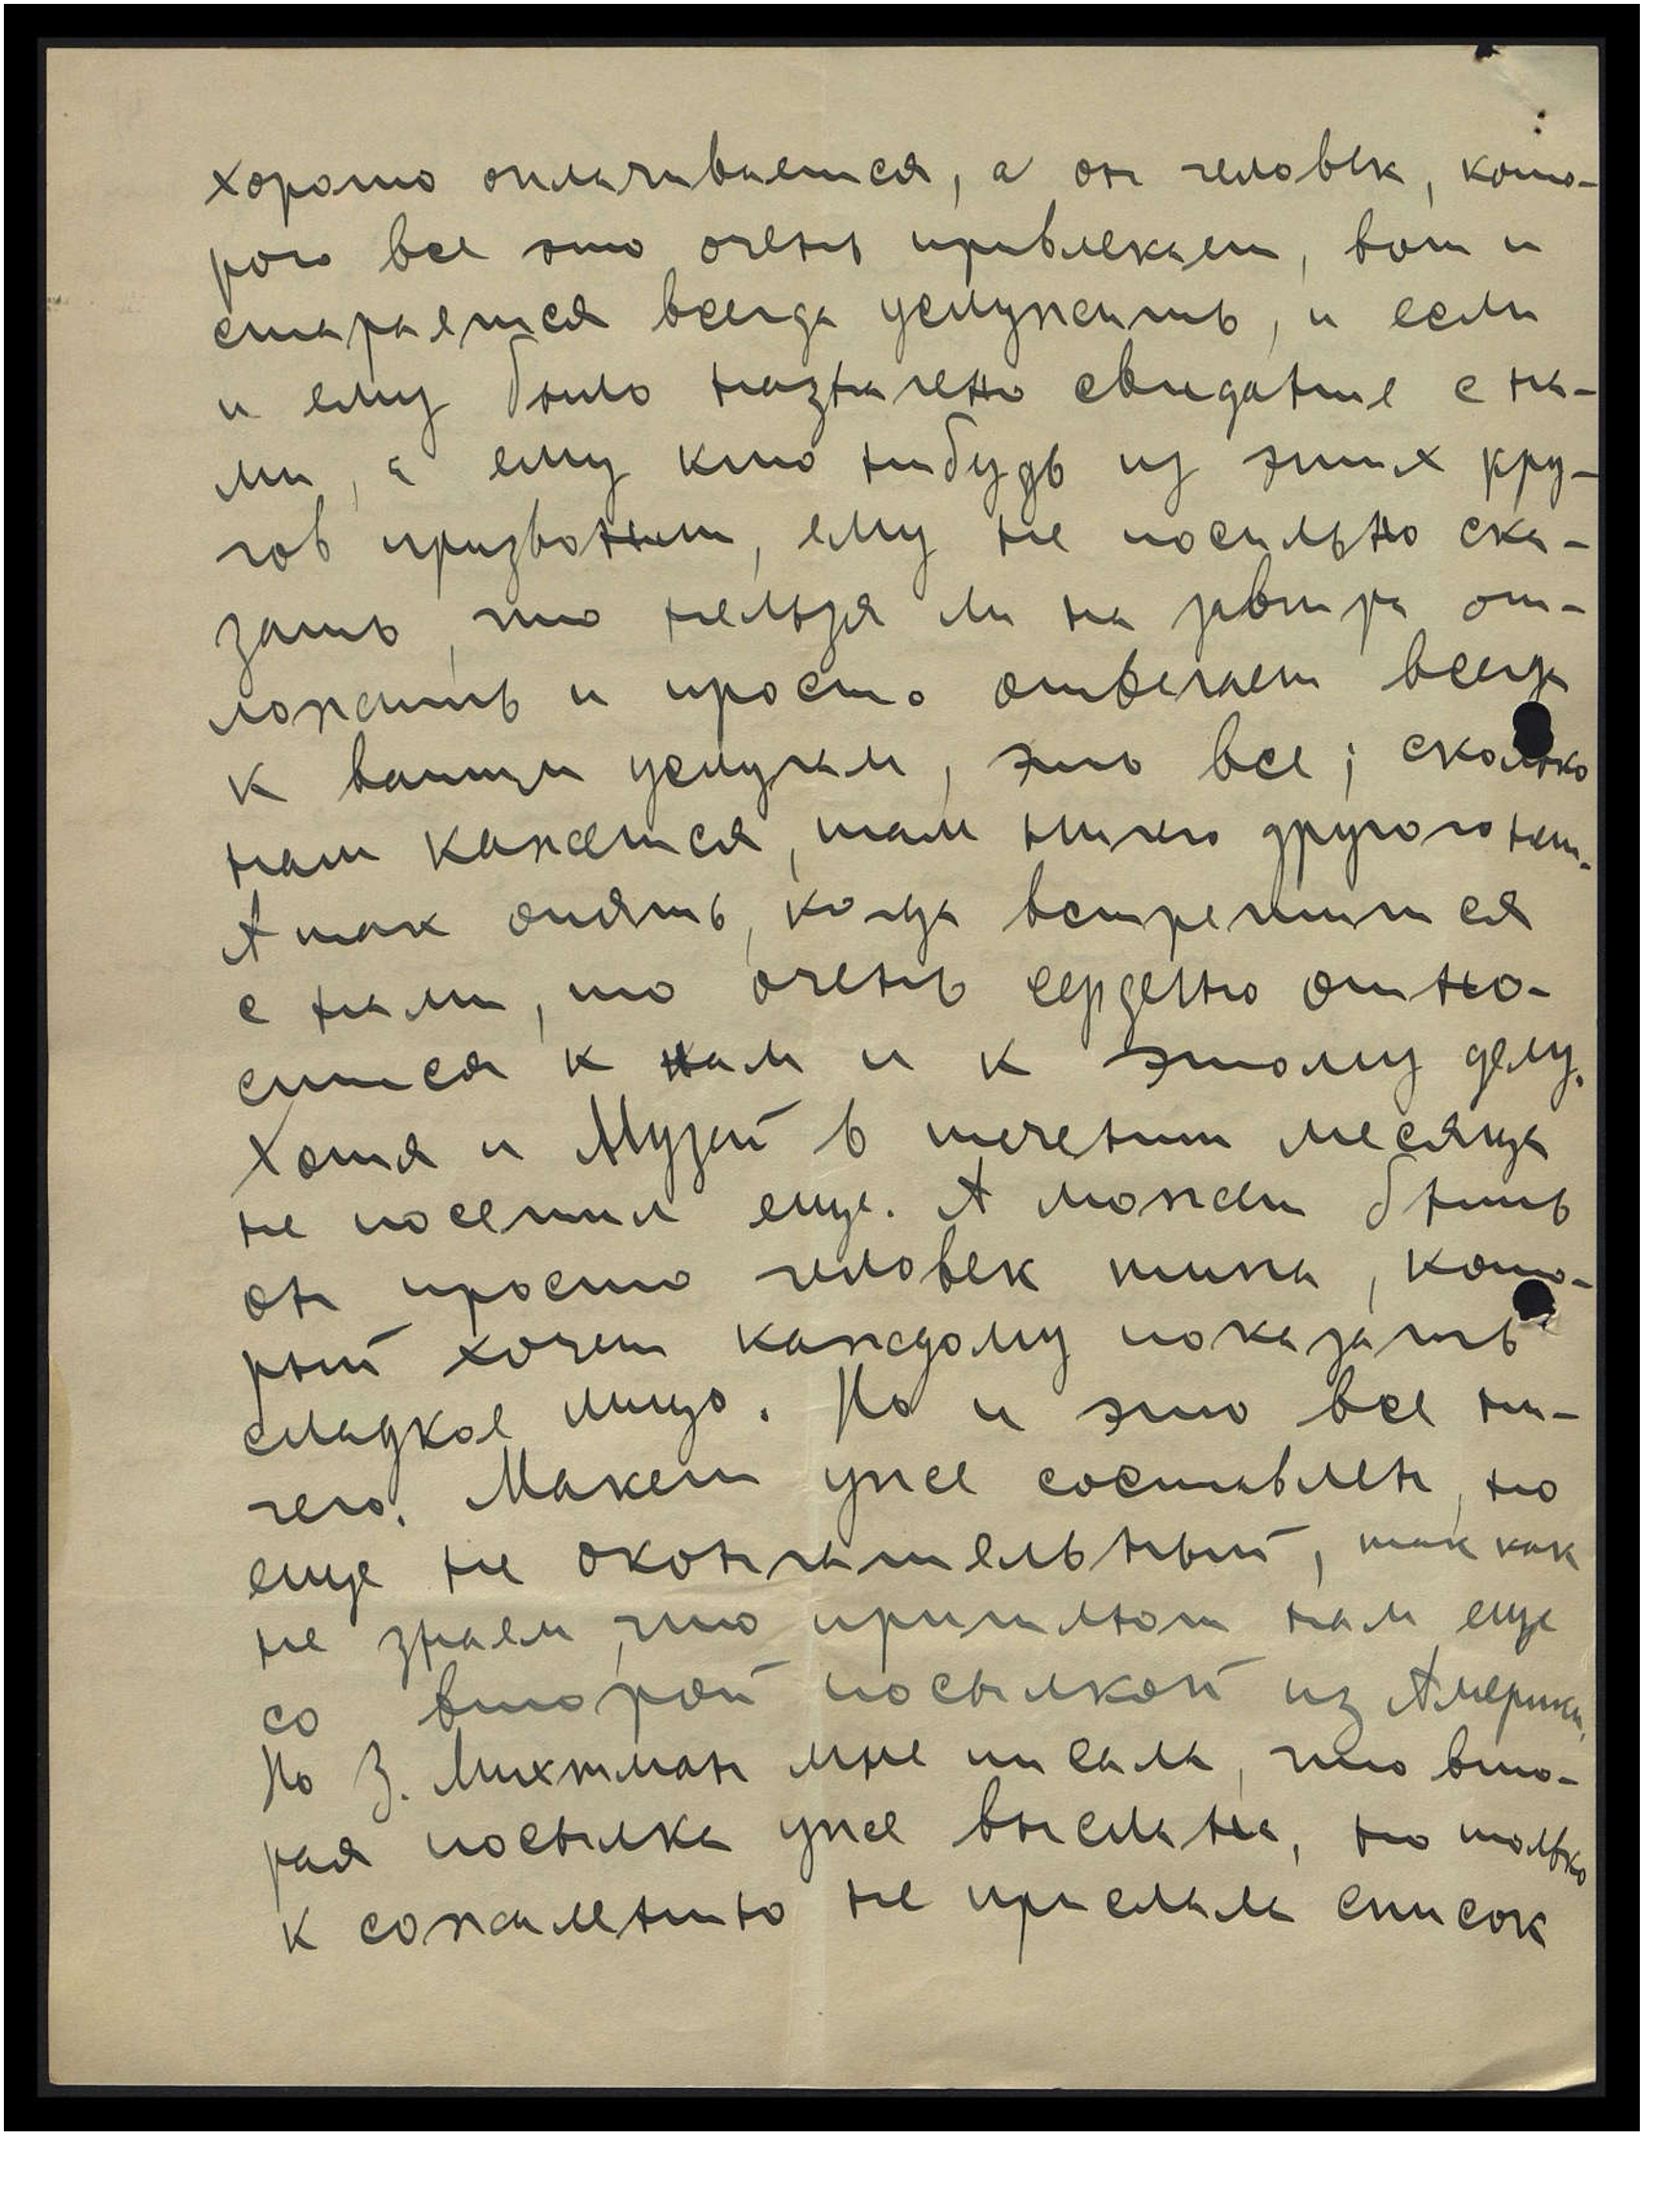 хорошо оплачивается, а он человек, кото-
рого все это очень привлекает, вот и
старается всегда услужить, и если
и ему было назначено свидание с на-
ми, а ему кто нибудь из этих кру-
гов призвонит, ему не посильно ска-
зать, что нельзя ли на завтра от-
ложить и просто отвечает всегда
к вашим услугам, это все; сколько
нам кажется, там ничего другого нет.
А так опять, когда встретится
с нами, то очень сердечно отно-
сится к нам и к этому делу.
Хотя и Музей в течении месяца
не посетил еще. А может быть
он просто человек типа, кото-
рый хочет каждому показать
сладкое лицо. Но и это все ни-
чего. Макет уже составлен, но
еще не окончательный, так как
не знаем, что пришлют нам еще
со второй посылкой из Америки.
Но З. Лихтман мне писала, что вто-
рая посылка уже выслана, но только
к сожалению не прислала список